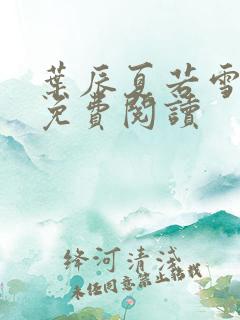 葉辰夏若雪
免費閱讀
绛河清浅
未经同意禁止转载